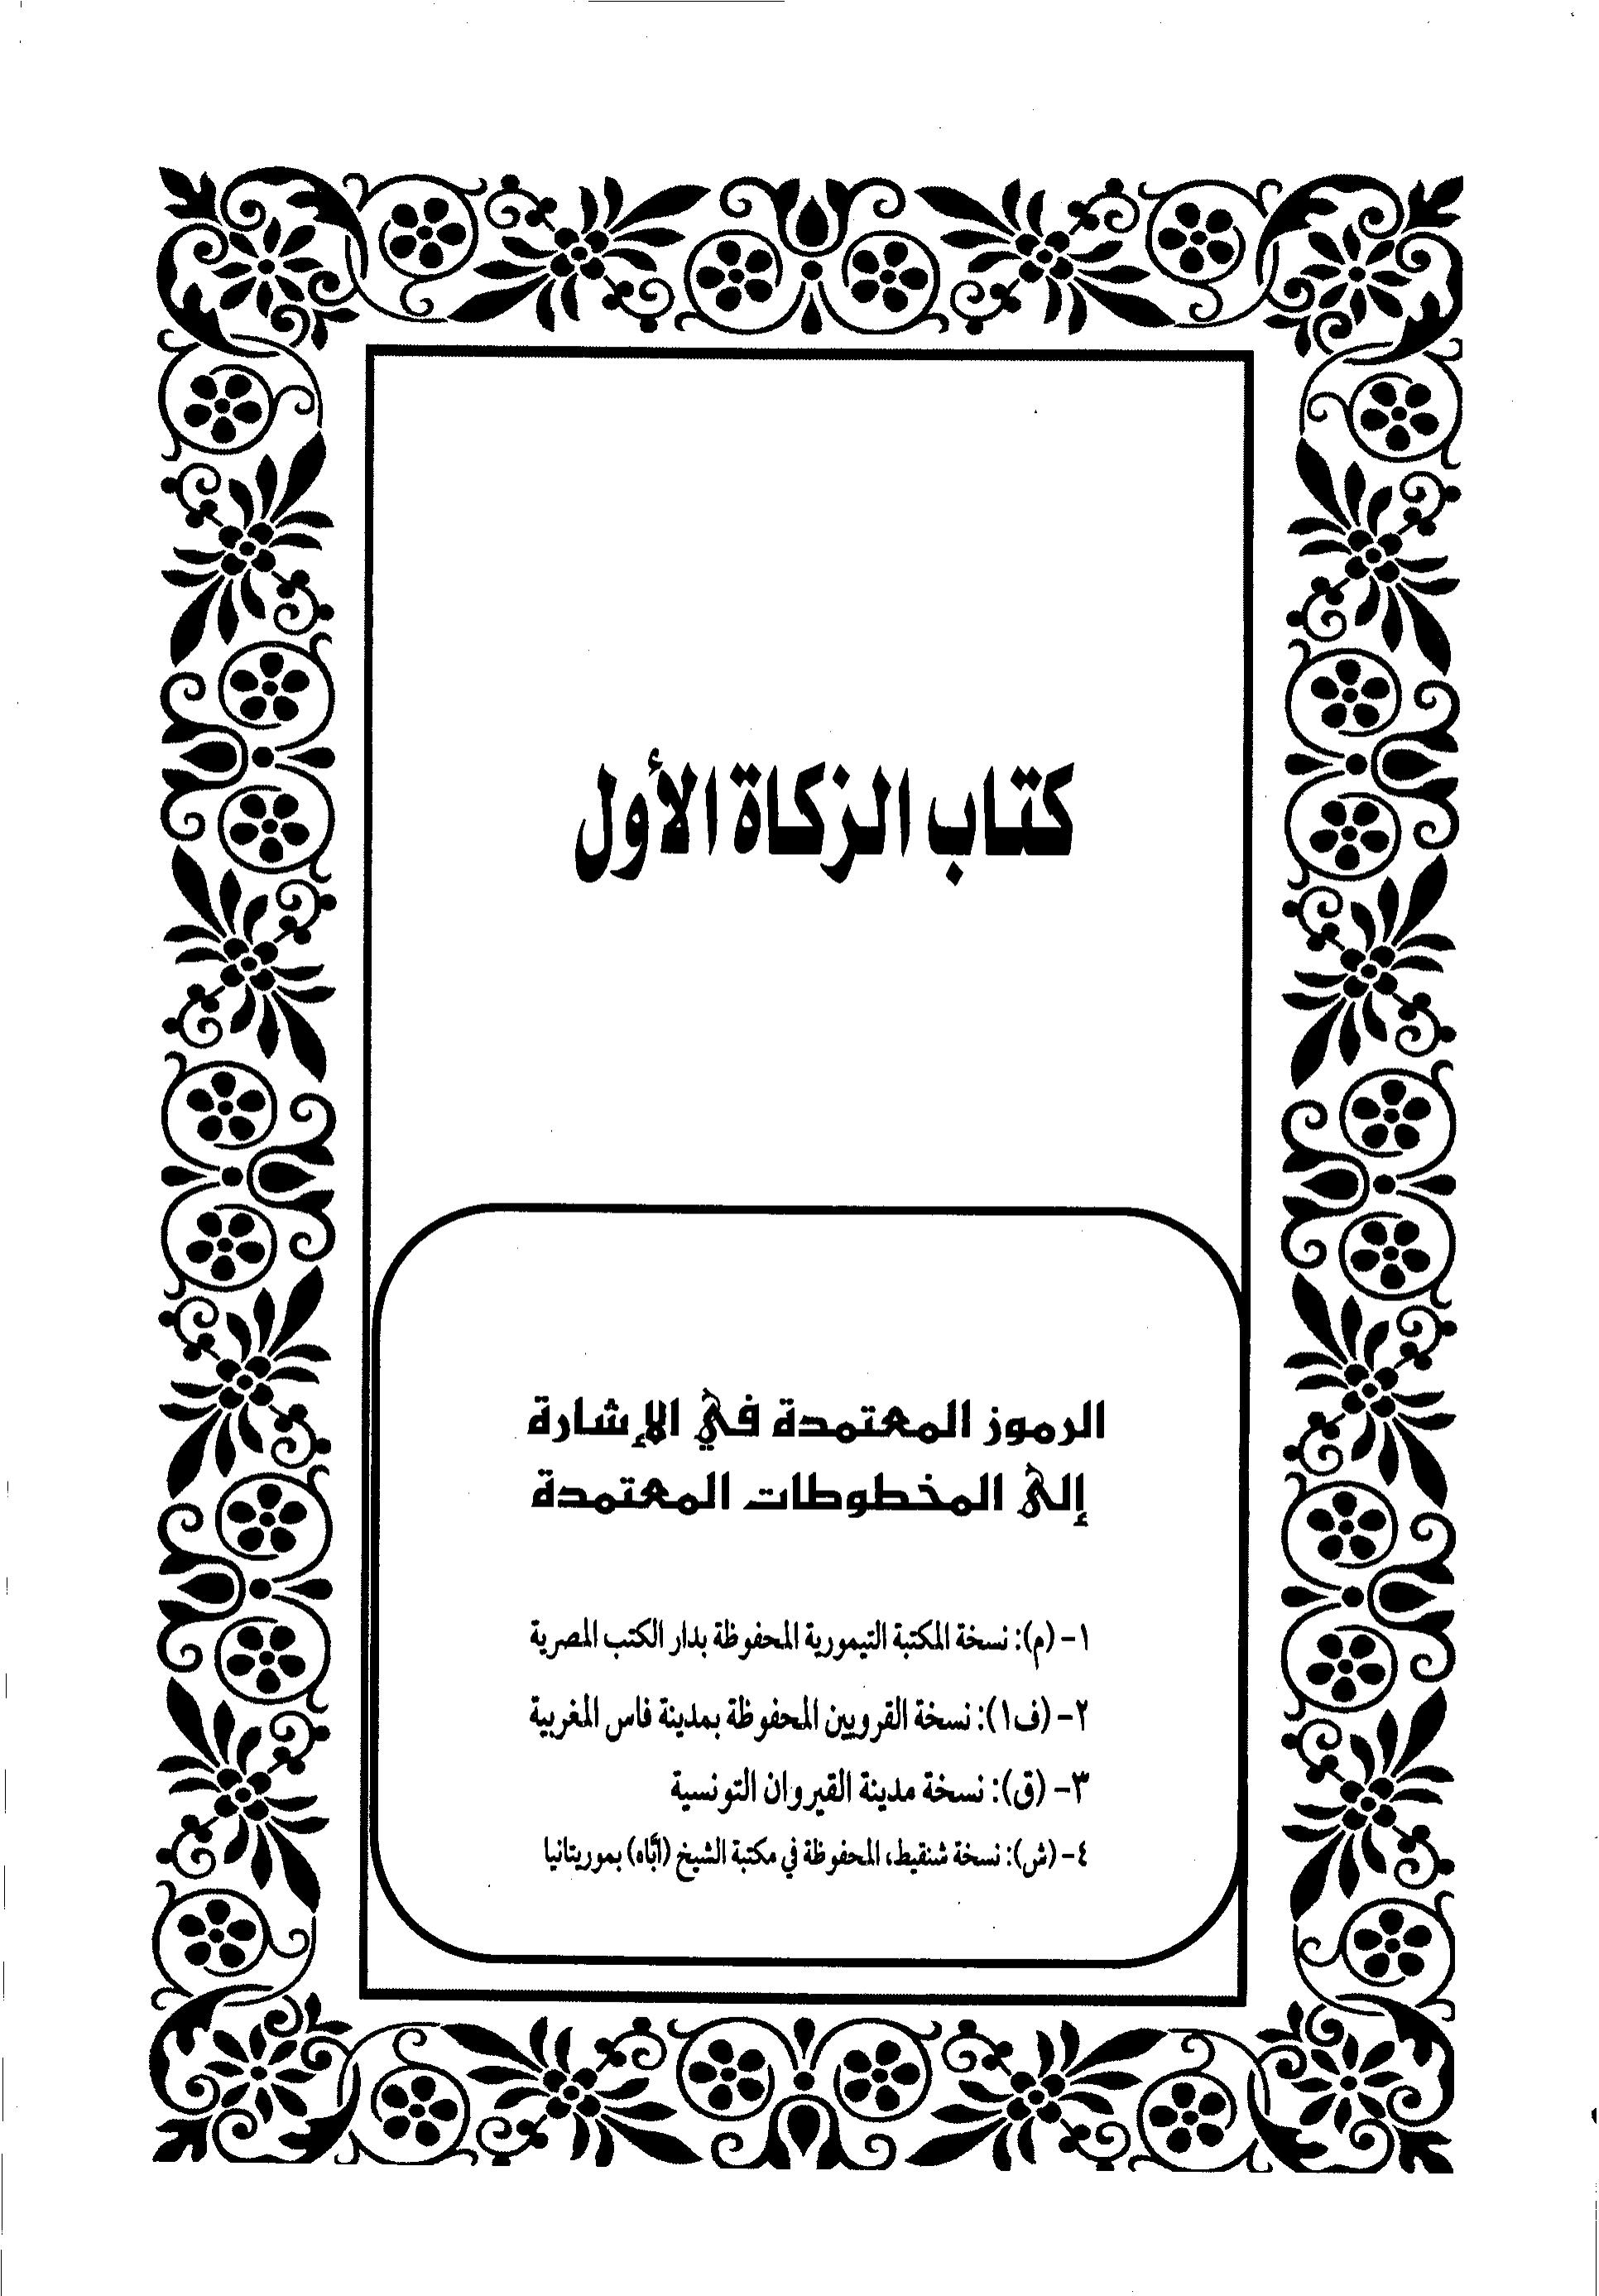 كتاب الزكاة الأول
الرموز المعتمدة في الإشارة
إلى المخطوطات المعتمدة
١- (م): نسخة المكتبة التيمورية المحفوظة بدار الكتب المصرية
٢- (ف١): نسخة القرويين المحفوظة بمدينة فاس المغربية
٣- (ق): نسخة مدينة القيروان التونسية
٤- (ش): نسخة شنقيط، المحفوظة في مكتبة الشيخ (أبَّاه) بموريتانيا